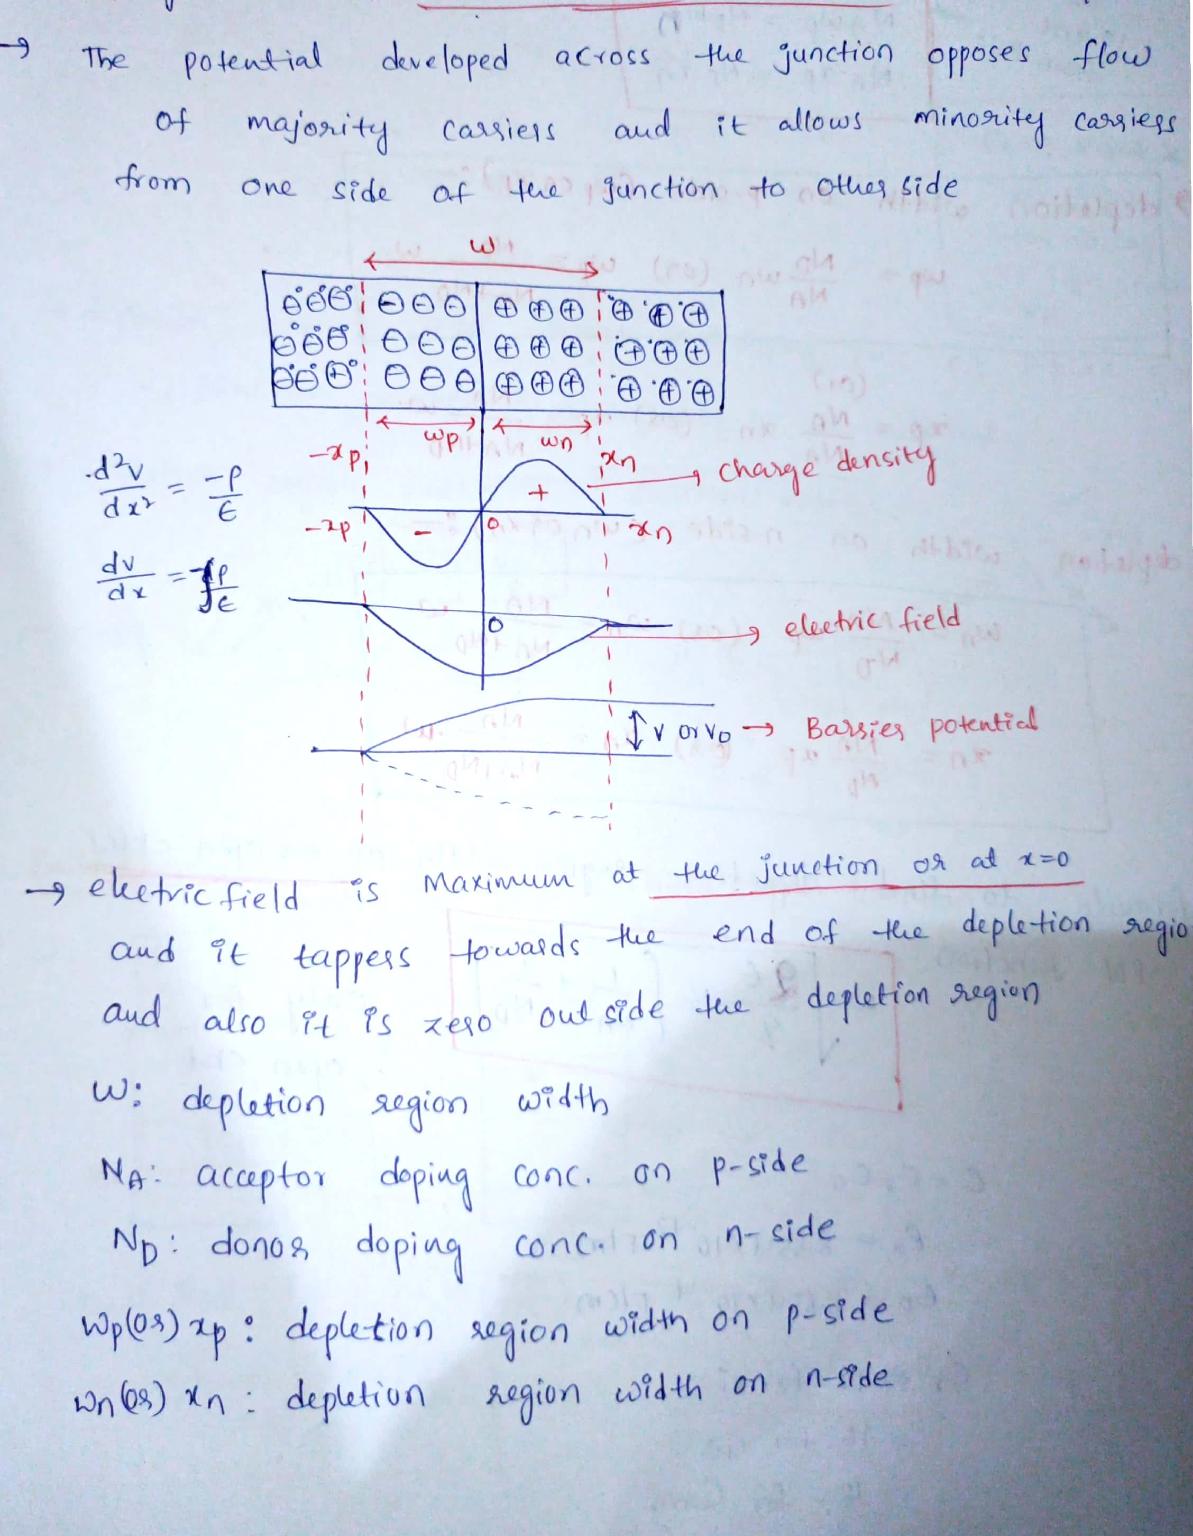 → The potential developed across the junction opposes flow
of majority carriers and it allows minority carriers
from one side of the junction to other side
W
wp wn
-xp xn → charge density
d²v/dx² = -ρ/ϵ
+
-xp - 0 xn
dv/dx = -∫ρ/ϵ
0 → electric field
V or V0 → Barrier potential
→ electric field is Maximum at the junction or at x=0
and it tappers towards the end of the depletion regio
and also it is zero out side the depletion region
W: depletion region width
NA: acceptor doping conc. on p-side
ND: donor doping conc. on n-side
Wp(or) xp: depletion region width on p-side
Wn(or) xn: depletion region width on n-side